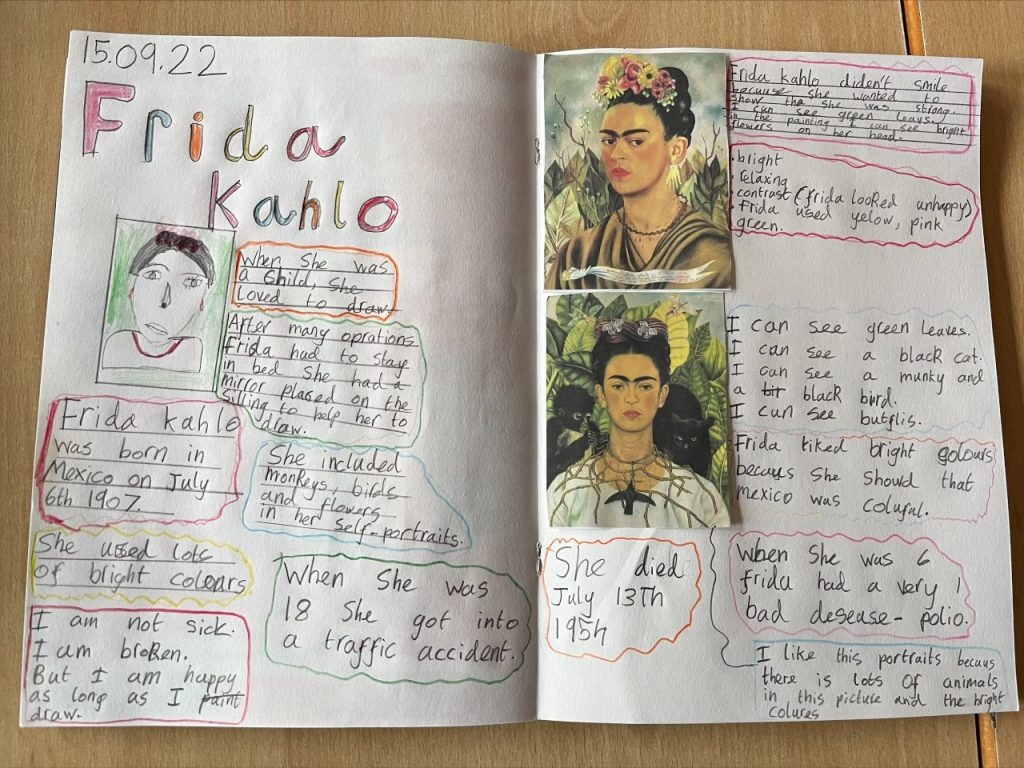 15.09.22
Frida
Kahlo
When She was
a Child, She
loved to draw.
After many oprations
Frida had to stay
in bed She had a
mirror plased on the
Silling to help her to
draw.
Frida kahlo
was born in
Mexico on July
6th 1907
She included
monkeys, birds
and flowers
in her self-portraits.
She used lots
Of bright colours
When She was
18 She got into
a traffic accident.
I am not sick.
I am broken.
But I am happy
as long as I paint
draw.
Frida kahlo diden't smile
because she wanted to
show tha she was strong.
I can see green leavs.
in the painting I can see bright
flowers on her head.
•bright
•relaxing
•contrast (frida looked unhappy)
•Frida used yelow, pink
green.
I can see green leaves.
I can see a black cat.
I can see a munky and
a bit black bird.
I can see butflis.
Frida liked bright colours
becuys She Showd that
mexico was coluful.
She died
July 13Th
1954
When She was 6
frida had a very 1
bad desease- polio.
I like this portraits becaus
there is lots Of animals
in this picture and the bright
colures